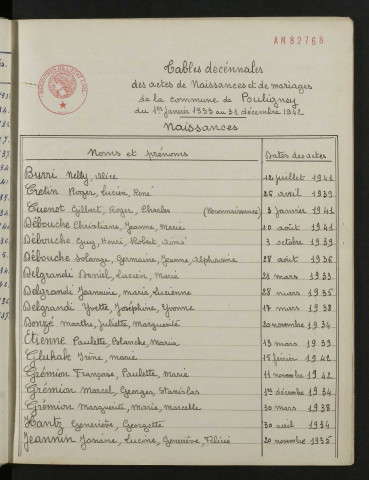 AM 82768
Tables decénnales
des actes de Naissances et de mariages
de la commune de Pouligney
du 1er Janvier 1933 au 31 décembre 1942
Naissances
Noms et prénoms Dates des actes
Burri Nelly, Alice 12 juillet 1941
Cretin Roger, Lucien, René 26 avril 1939
Cuenot Gilbert, Roger, Charles (Reconnaissance) 3 janvier 1941
Débouche Christiane, Jeanne, Marie 10 août 1941
Débouche Guy, Henri, Robert, Aimé 3 octobre 1939
Débouche Solange, Germaine, Jeanne, Alphonsine 28 août 1936
Delgrandi Daniel, Lucien, Marie 21 mars 1933
Delgrandi Jeannine, Marie, Lucienne 28 mars 1935
Delgrandi Yvette, Joséphine, Yvonne 17 mars 1938
Donzé Marthe, Juliette, Marguerite 20 novembre 1934
Etienne Paulette, Blanche, Maria 13 mars 1933
Gluhak Irène, Marie 15 février 1942
Grémion Françoise, Paulette, Marie 11 novembre 1942
Grémion Marcel, Georges, Stanislas 1er décembre 1934
Grémion Marguerite, Marie, Marcelle 30 mars 1938
Hantz Geneviève, Georgette 30 avril 1934
Jeannin Josiane, Lucine, Geneviève, Félicie 20 novembre 1935